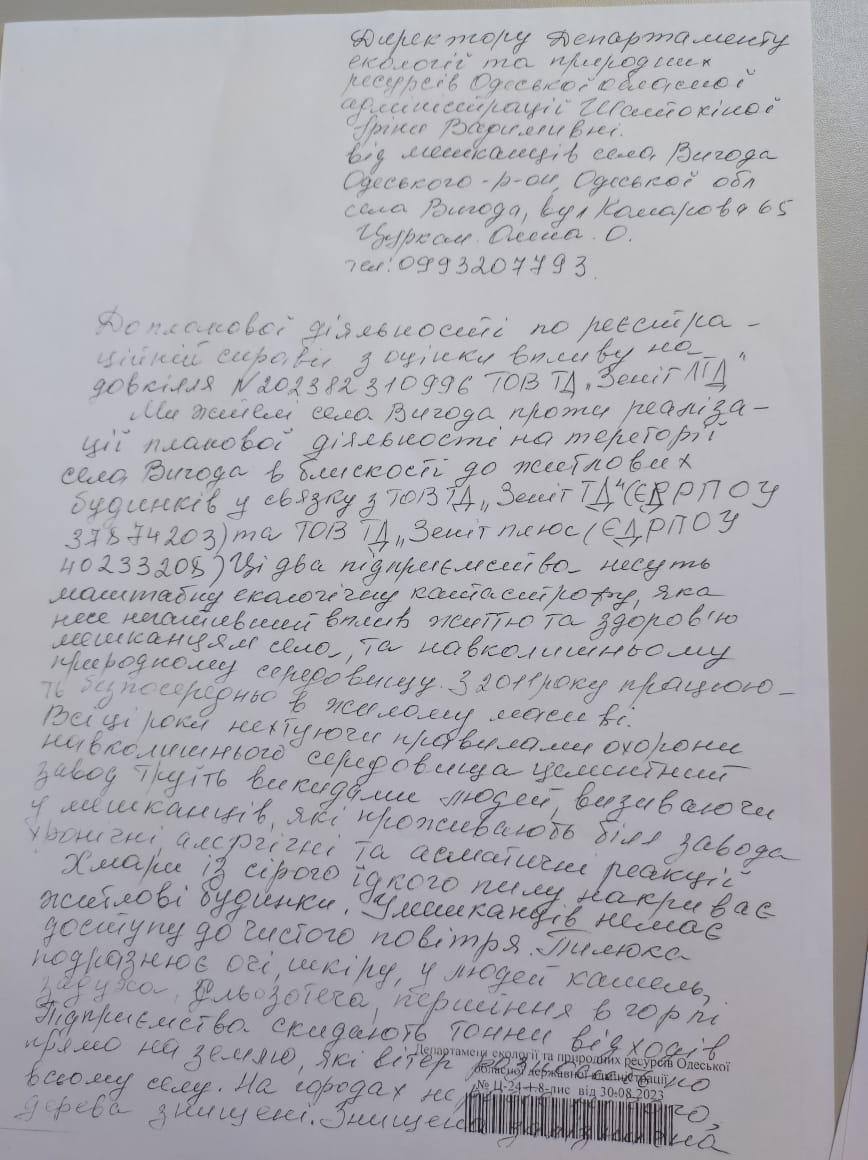 Директору Департаменту
екології та природних
ресурсів Одеської обласної
адміністрації Шатокіної
Іріни Вадимивні.
від мешканців села Вигода
Одеського р-он, Одеської обл
села Вигода, вул Комарова 65
Цуркан Олена. О.
тел: 0993207793.
До планової діяльності по реєстра-
ційній справи з оцінки впливу на
довкілля N 202382310996 ТОВ ТД „Зеніт ЛТД"
Ми жителі села Вигода проти реаліза-
ції планової діяльності на тереторії
села Вигода в блискості до житлових
будинків у связку з ТОВ ТД „Зеніт ТД" (ЄДРПОУ
37874203) та ТОВ ТД „Зеніт плюс (ЄДРПОУ
40233205) Ці два підприємства несуть
маштабну екологічну катастрофу, яка
несе негативний вплив життю та здоров'ю
мешканцям села, та навколишньому
природному середовищу. З 2011 року працюю-
ть безпосередньо в жилому масиві.
Всі ці роки нехтуючи правилами охорони
навколишнього середовища цементний
завод труїть викидами людей, визиваючи
у мешканців, які проживають біля завода
хронічні, алергічні та асматичні реакції
Хмари із сірого їдкого пилу накриває
житлові будинки. У мешканців немає
доступу до чистого повітря. Пилюка
подразнює очі, шкіру, у людей кашель,
задуха, сльозотеча, першіння в горлі
Підприємства скидають тонни відходів
прямо на землю, які вітер по
всьому селу. На городах не
дерева знищені. Знищена
Департамент екології та природних ресурсів Одеської
обласної державної адміністрації
№ Ц-24+8-пис від 30.08.2023